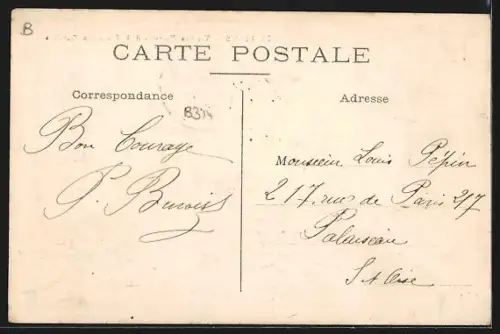 B
CARTE POSTALE
Correspondance
Adresse
Bon Courage
P. Benoist
Monsieur Louis Pépin
217. rue de Paris 217
Palaiseau
S et Oise